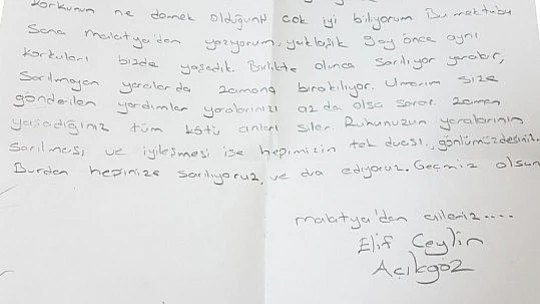 Korkunun ne demek olduğunu çok iyi biliyorum Bu mektubu
Sana malatya'dan yazıyorum. yaklaşık 9 ay önce aynı
korkuları bizde yaşadık. Birlikte olunca sarılıyor yaralar,
Sarılmayan yaralarda zamana bırakılıyor. Umarım size
gönderilen yardımlar yaralarınızı az da olsa sarar. zaman
yaşadığınız tüm kötü anları siler. Ruhunuzun yaralarının
sarılması ve iyileşmesi ise hepimizin tek duası, gönlümüzdesiniz.
Burdan hepinize sarılıyoruz, ve dua ediyoruz. Geçmiş olsun
malatya'dan aileniz....
Elif Ceylin
Açıkgöz